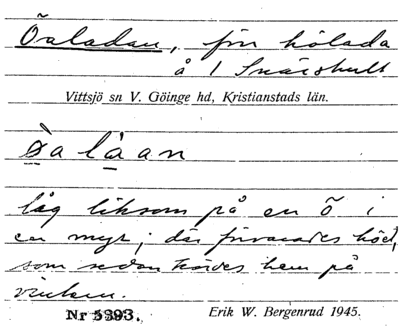 Öaladan, för hölada
å 1 Snärshult
Vittsjö sn V. Göinge hd, Kristianstads län.
òa làan
låg liksom på en ö i
en myr; där förvarades höet,
som sedan kördes hem på
vintern.
Nr 5393. Erik W. Bergenrud 1945.